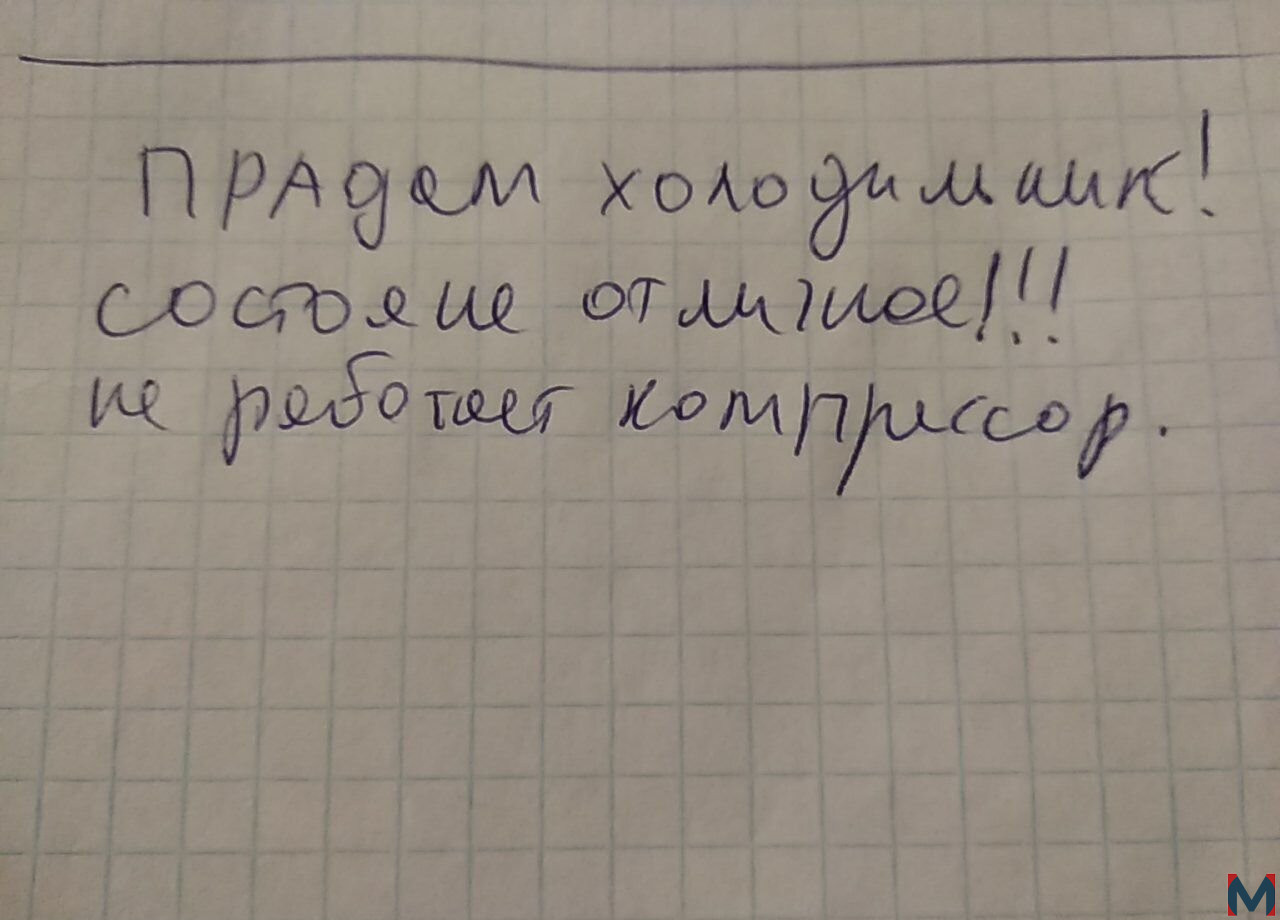 ПРАдам холодильник!
состояне отличное!!!
не работает компрессор.
M